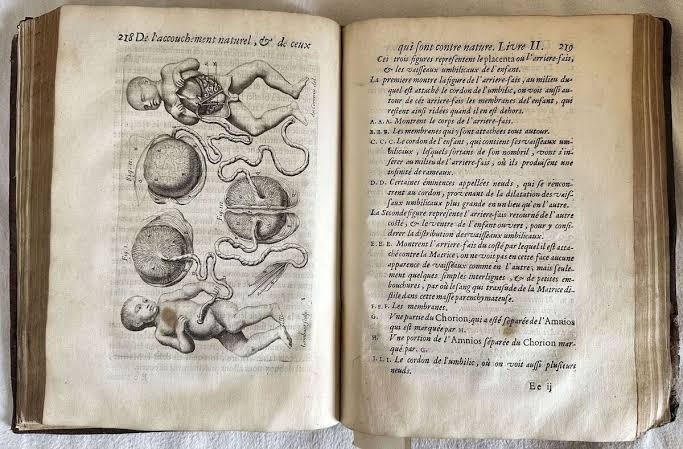 218 De l'accouchement naturel, & de ceux
qui sont contre nature. Livre II. 219
Ces trois figures representent le placenta ou l'arriere-fais,
& les vaisseaux umbilicaux de l'enfant.
La premiere montre la figure de l'arriere-fais, au milieu du-
quel est attaché le cordon de l'umbilic, on voit aussi au-
tour de cét arriere-fais les membranes de l'enfant, qui
restent ainsi ridées quand il en est dehors.
A. A. A. Montrent le corps de l'arriere-fais.
B. B. B. Les membranes qui y sont attachées tout autour.
C. C. C. Le cordon de l'enfant, qui contient ses vaisseaux um-
bilicaux, lesquels sortans de son nombril, vont s'in-
serer au milieu de l'arriere-fais, où ils produisent une
infinité de rameaux.
D. D. Certaines éminences appellées neuds, qui se rencon-
trent au cordon, provenant de la dilatation des vais-
seaux umbilicaux plus grande en un lieu qu'en l'autre.
La Seconde figure represente l'arriere-fais retourné de l'autre
costé, & le ventre de l'enfant ouvert, pour y consi-
derer la distribution des vaisseaux umbilicaux.
E. E. E. Montrent l'arriere-fais du costé par lequel il est atta-
ché contre la Matrice, on ne voit pas en cette face aucune
apparence de vaisseaux comme en l'autre, mais seule-
ment quelques simples interlignes, & de petites em-
bouchures, par où le sang qui transude de la Matrice di-
stile dans cette masse parenchymateuse.
F. F. F. Les membranes.
G. Vne partie du Chorion, qui a esté separée de l'Amnios
qui est marquée par H.
H. Vne portion de l'Amnios separée du Chorion mar-
qué par G.
I. I. I. Le cordon de l'umbilic, où on voit aussi plusieurs
neuds.
Ee ij